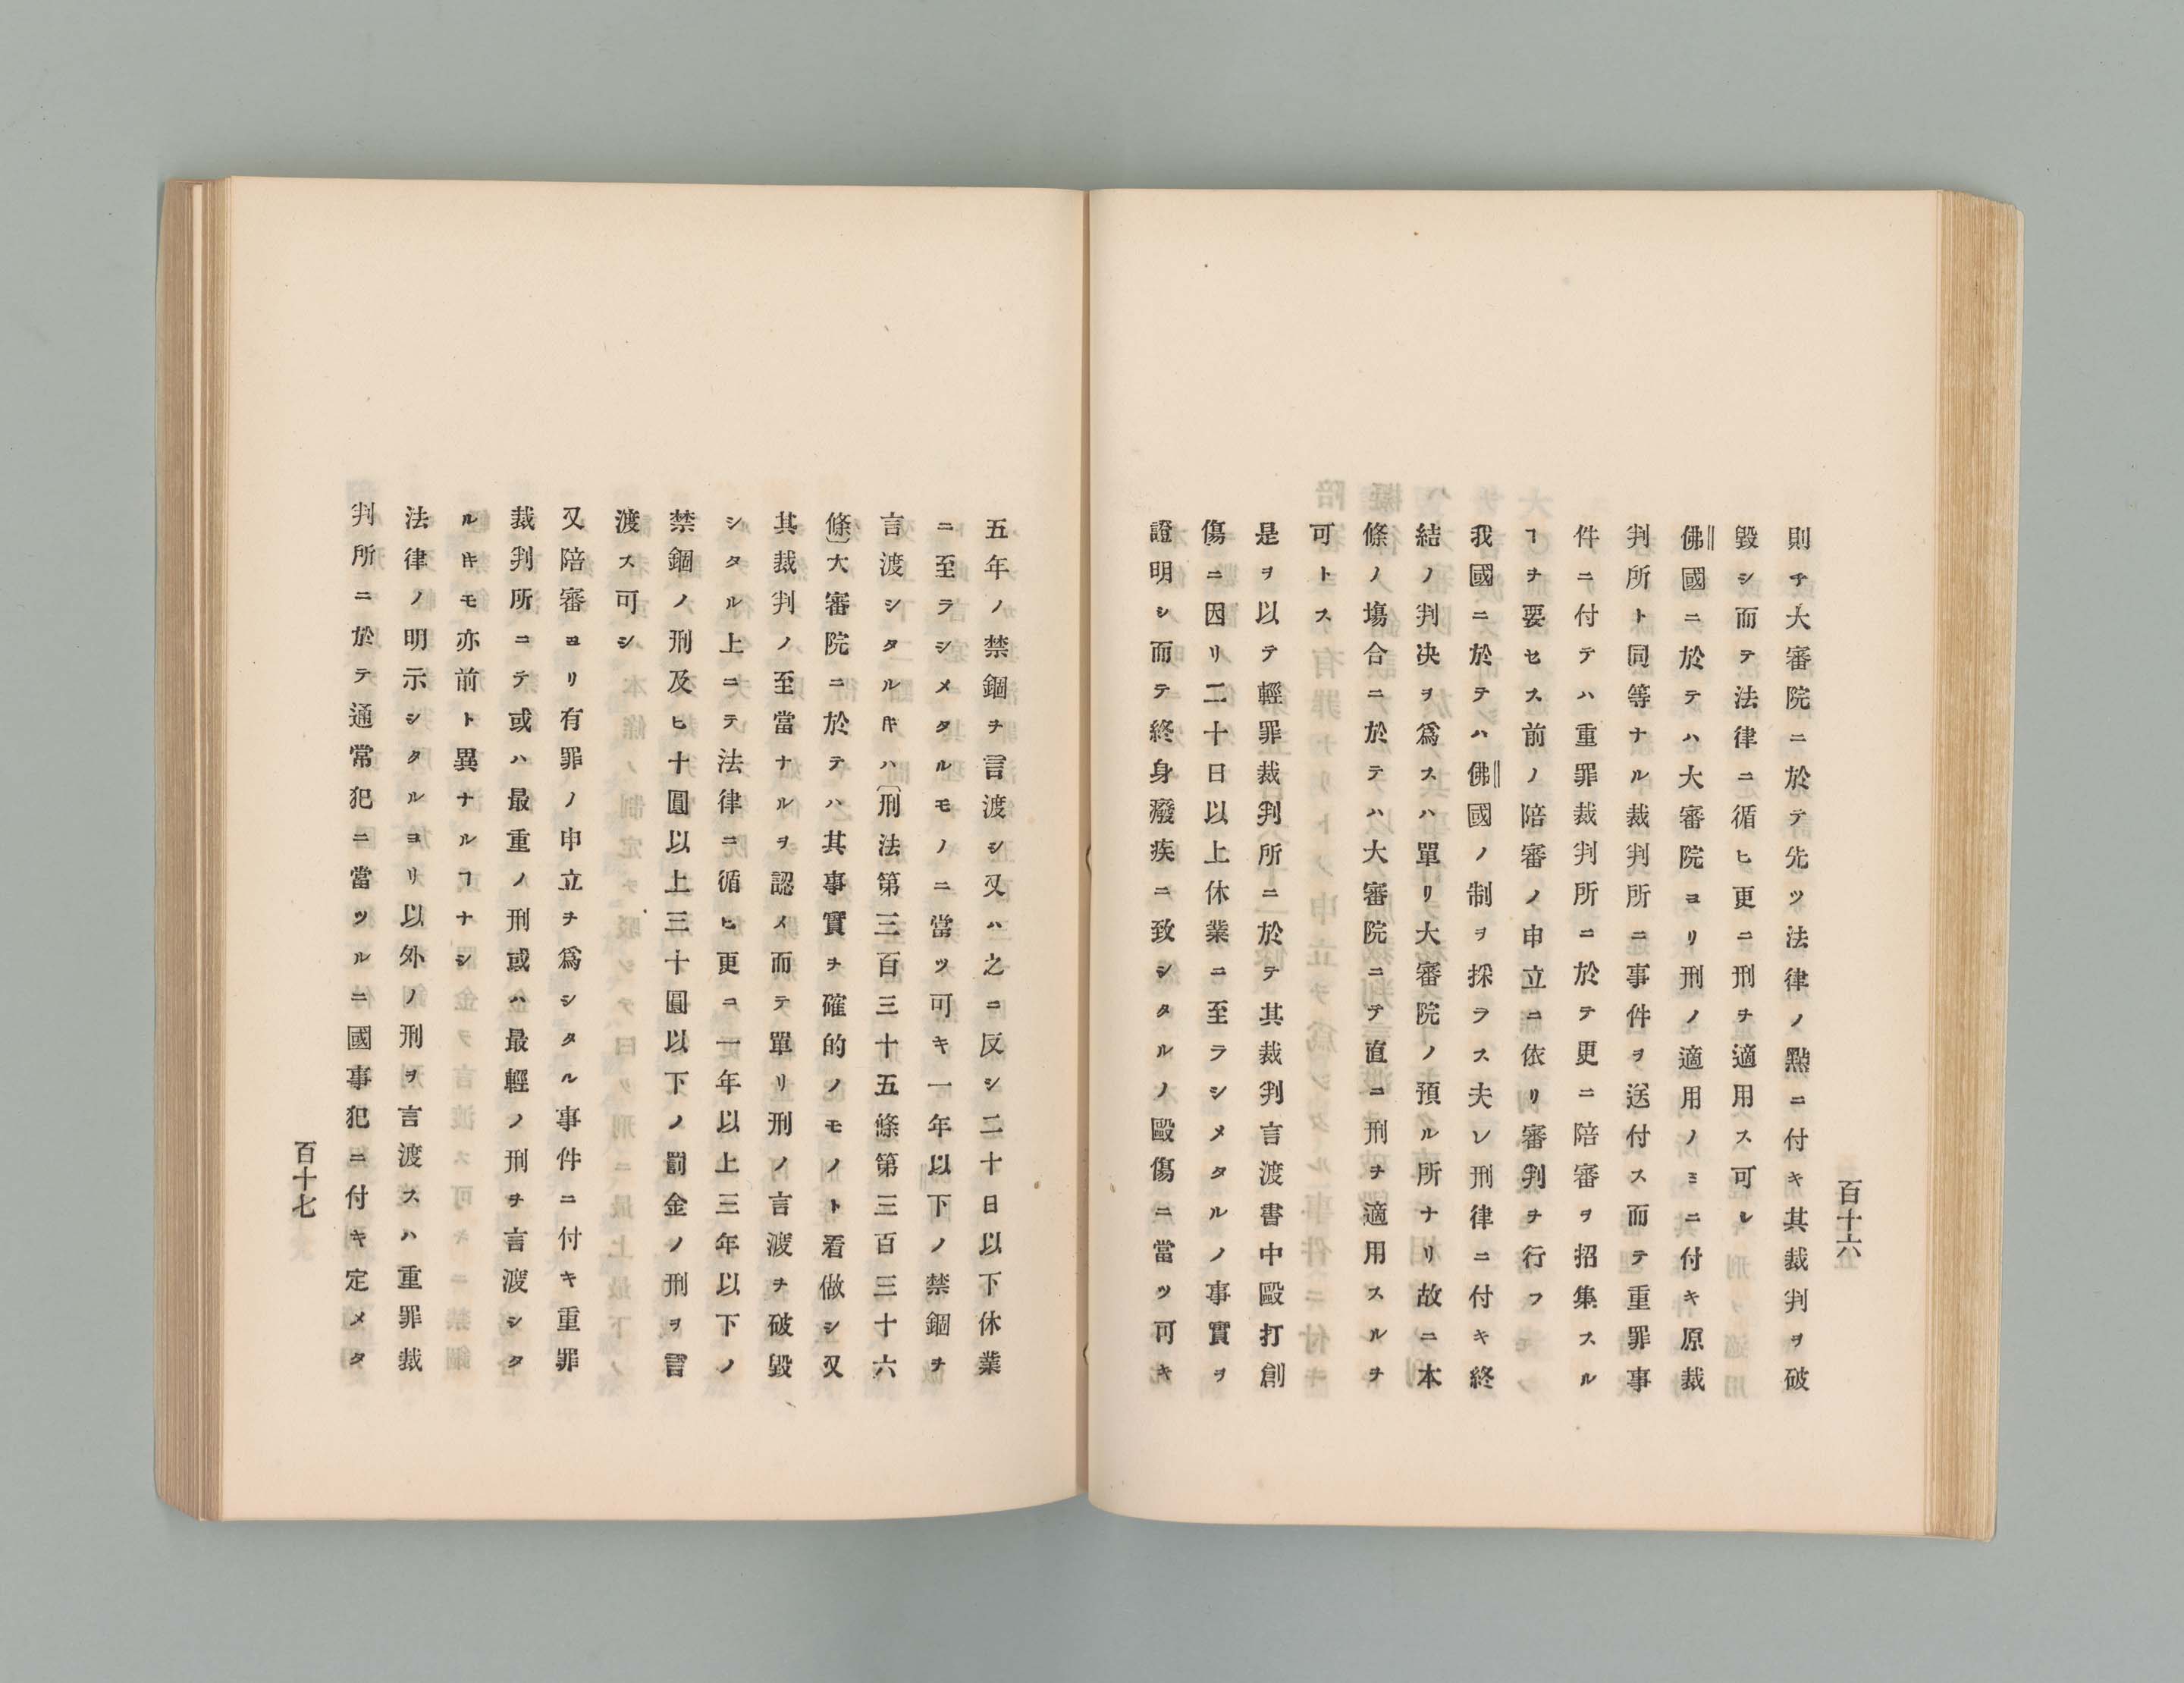 百十六
則チ大審院ニ於テ先ツ法律ノ點ニ付キ其裁判ヲ破
毀シ而テ法律ニ循ヒ更ニ刑ヲ適用ス可シ
佛國ニ於テハ大審院ヨリ刑ノ適用ノミニ付キ原裁
判所ト同等ナル裁判所ニ事件ヲ送付ス而テ重罪事
件ニ付テハ重罪裁判所ニ於テ更ニ陪審ヲ招集スル
ヿヲ要セス前ノ陪審ノ申立ニ依リ審判ヲ行フ
我國ニ於テハ佛國ノ制ヲ採ラス夫レ刑律ニ付キ終
結ノ判决ヲ爲スハ單リ大審院ノ預ル所ナリ故ニ本
條ノ塲合ニ於テハ大審院ニテ直ニ刑ヲ適用スルヲ
可トス
是ヲ以テ輕罪裁判所ニ於テ其裁判言渡書中毆打創
傷ニ因リ二十日以上休業ニ至ラシメタルノ事實ヲ
證明シ而テ終身癈疾ニ致シタルノ毆傷ニ當ツ可キ
五年ノ禁錮ヲ言渡シ又ハ之ニ反シ二十日以下休業
ニ至ラシメタルモノニ當ツ可キ一年以下ノ禁錮ヲ
言渡シタルキハ(刑法第三百三十五條第三百三十六
條)大審院ニ於テハ其事實ヲ確的ノモノト看做シ又
其裁判ノ至當ナルヲ認メ而テ單リ刑ノ言渡ヲ破毀
シタル上ニテ法律ニ循ヒ更ニ一年以上三年以下ノ
禁錮ノ刑及ヒ十圓以上三十圓以下ノ罰金ノ刑ヲ言
渡ス可シ
又陪審ヨリ有罪ノ申立ヲ爲シタル事件ニ付キ重罪
裁判所ニテ或ハ最重ノ刑或ハ最輕ノ刑ヲ言渡シタ
ルキモ亦前ト異ナルヿナシ
法律ノ明示シタルヨリ以外ノ刑ヲ言渡スハ重罪裁
判所ニ於テ通常犯ニ當ツルニ國事犯ニ付キ定メタ
百十七